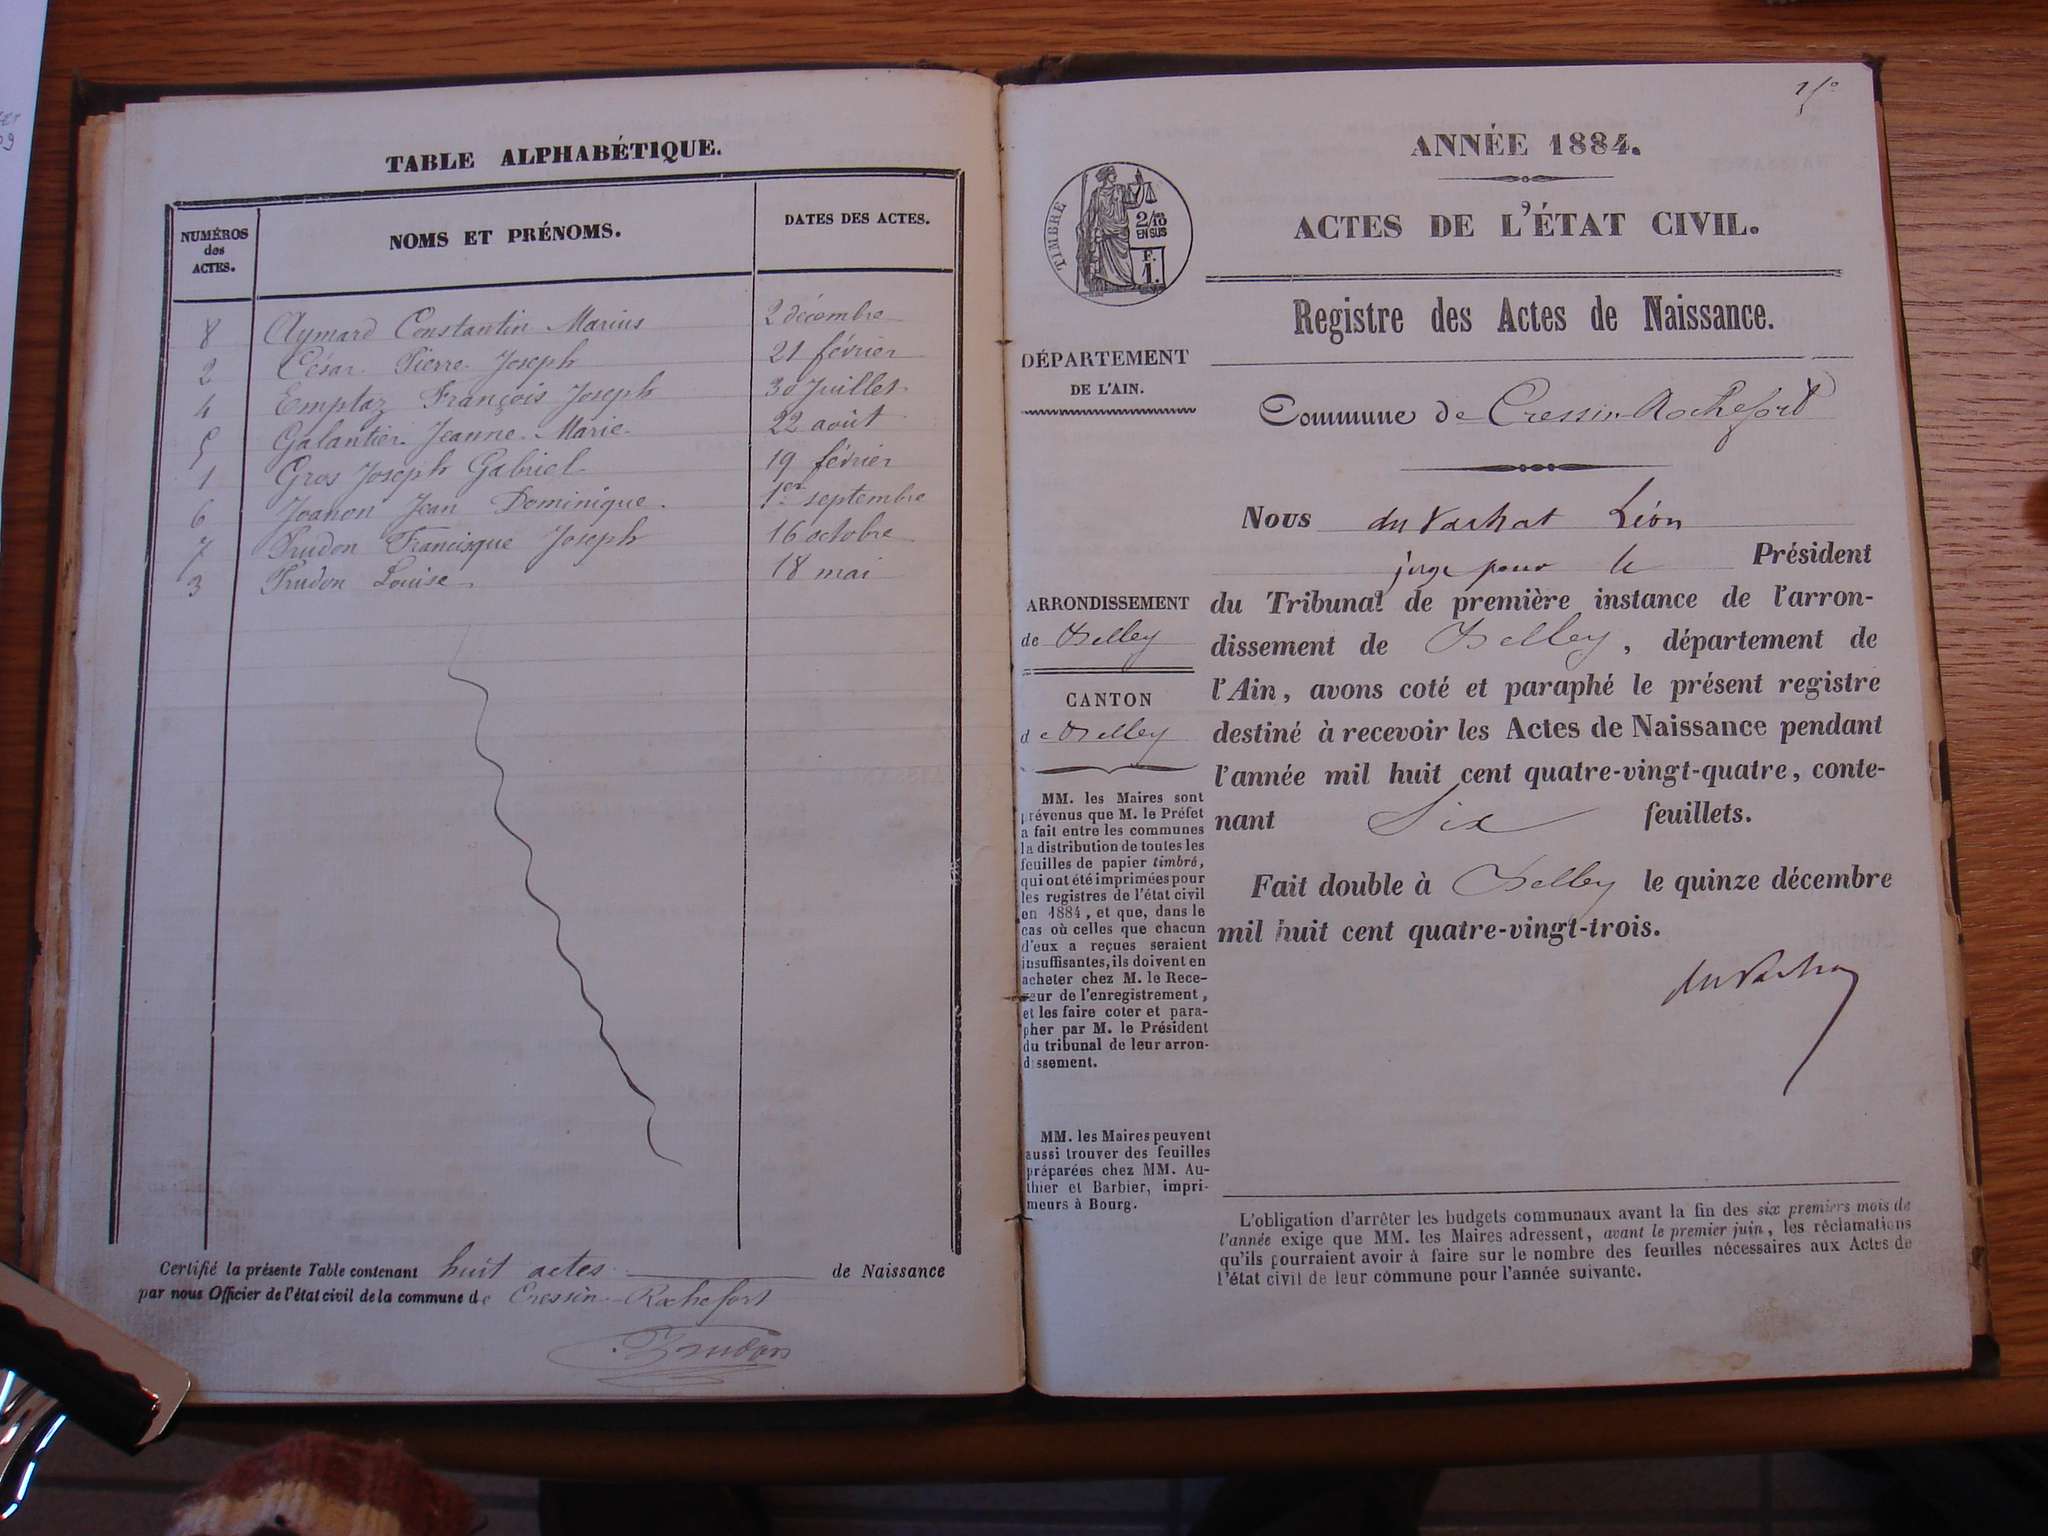 TABLE ALPHABÉTIQUE.
NUMÉROS des ACTES.
NOMS ET PRÉNOMS.
DATES DES ACTES.
8 Aymard Constantin Marius 2 décembre
2 César Pierre Joseph 21 février
4 Emptoz François Joseph 30 Juillet
5 Galantier Jeanne Marie 22 août
1 Gros Joseph Gabriel 19 février
6 Joanon Jean Dominique. 1er septembre
7 Prudon Francisque Joseph 16 octobre
3 Prudon Louise 18 mai
Certifié la présente Table contenant huit actes de Naissance
par nous Officier de l'état civil de la commune de Cressin-Rochefort
Prudon
ANNÉE 1884.
ACTES DE L'ÉTAT CIVIL.
TIMBRE
2/10
EN SUS
F.
1.
Registre des Actes de Naissance.
DÉPARTEMENT
DE L'AIN.
Commune de Cressin-Rochefort
Nous du Vachat Léon
juge pour le Président
du Tribunal de première instance de l'arron-
dissement de Belley, département de
l'Ain, avons coté et paraphé le présent registre
destiné à recevoir les Actes de Naissance pendant
l'année mil huit cent quatre-vingt-quatre, conte-
nant Six feuillets.
Fait double à Belley le quinze décembre
mil huit cent quatre-vingt-trois.
du Vachat
ARRONDISSEMENT
de Belley
CANTON
de Belley
MM. les Maires sont
prévenus que M. le Préfet
a fait entre les communes
la distribution de toutes les
feuilles de papier timbré,
qui ont été imprimées pour
les registres de l'état civil
en 1884, et que, dans le
cas où celles que chacun
d'eux a reçues seraient
insuffisantes, ils doivent en
acheter chez M. le Rece-
veur de l'enregistrement,
et les faire coter et para-
pher par M. le Président
du tribunal de leur arron-
dissement.
MM. les Maires peuvent
aussi trouver des feuilles
préparées chez MM. Au-
thier et Barbier, impri-
meurs à Bourg.
L'obligation d'arrêter les budgets communaux avant la fin des six premiers mois de
l'année exige que MM. les Maires adressent, avant le premier juin, les réclamations
qu'ils pourraient avoir à faire sur le nombre des feuilles nécessaires aux Actes de
l'état civil de leur commune pour l'année suivante.